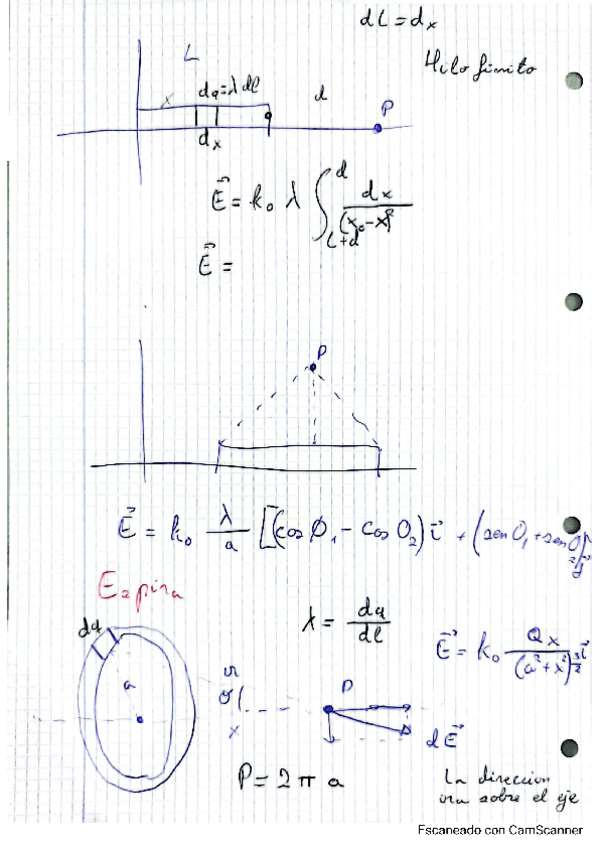 dl = dx
Hilo finito
L
dq = λ dl
d
x
P
dx
E⃗ = k₀ λ ∫ d L+d dx/(x₀-x)²
E⃗ =
P
E⃗ = k₀ λ/a [(cos θ₁ - cos θ₂) i⃗ + (sen θ₁ + sen θ₂) j⃗
Espira
λ = dq/dl
dq
E⃗ = k₀ Qx/(a²+x²)^3/2 i⃗
a
r
P
x
dE⃗
P = 2 π a
La direccion
ira sobre el eje
Escaneado con CamScanner